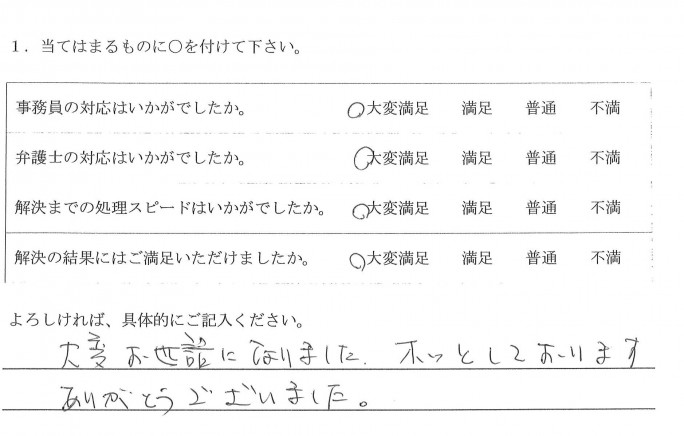 1．当てはまるものに○を付けて下さい。
事務員の対応はいかがでしたか。 ○大変満足 満足 普通 不満
弁護士の対応はいかがでしたか。 ○大変満足 満足 普通 不満
解決までの処理スピードはいかがでしたか。 ○大変満足 満足 普通 不満
解決の結果にはご満足いただけましたか。 ○大変満足 満足 普通 不満
よろしければ、具体的にご記入ください。
大変お世話になりました、ホッとしております
ありがとうございました。